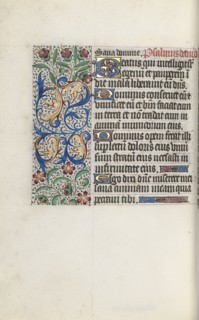 Sana domine. Psalmus david
Beatus qui intelligit super
egenum et pauperem in
die mala liberavit eum dñs.
Dominus conservet eum et
vivificet eum et beatum faciat eum
in terra et non tradat eum in
animam inimicorum eius.
Dominus opem ferat illi
super lectum doloris eius univer
sum stratum eius versasti in
infirmitate eius.
Ego dixi dñe miserere mei
sana animam meam quia
peccavi tibi.